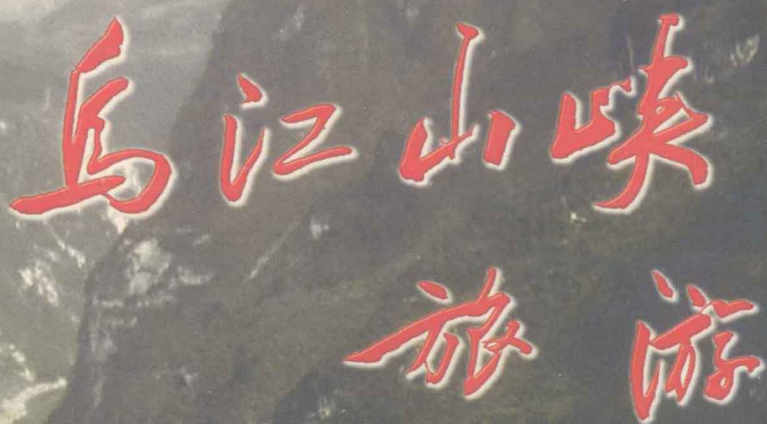 乌江山峡
旅游